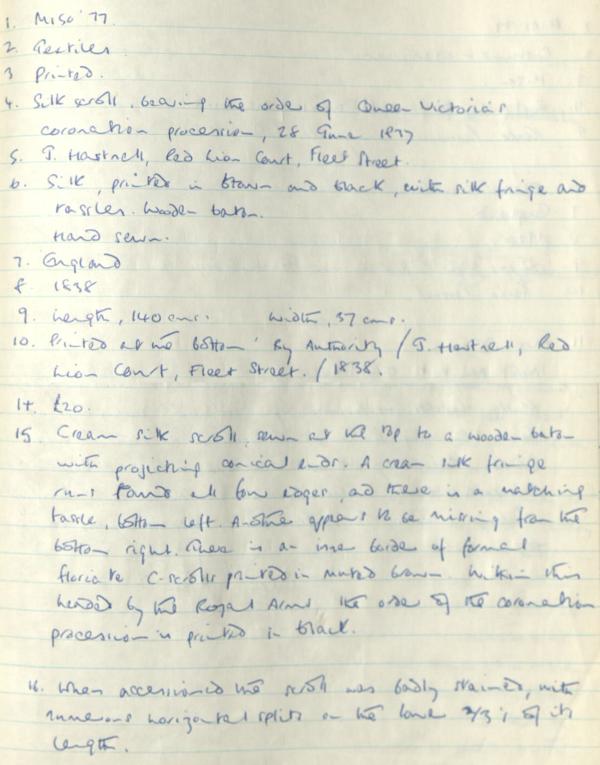 1. MISO '77.
2. Textiles.
3 Printed.
4. Silk scroll, bearing the order of Queen Victoria's
coronation procession, 28 June 1877
5. J. Hartnell, Red Lion Court, Fleet Street.
6. Silk, printed in brown and black, with silk fringe and
tassles. Wooden baton.
Hand sewn.
7. England
8. 1838
9. Length, 140 cms. Width, 37 cms.
10. Printed at the bottom 'By Authority / J. Hartnell, Red
Lion Court, Fleet Street. / 1838.
14. £20.
15 Cream silk scroll, sewn at the top to a wooden baton
with projecting conical ends. A cream silk fringe
runs round all four edges, and there is a matching
tassle, bottom left. Another appears to be missing from the
bottom right. There is an inner border of formal
floriate C-scrolls printed in muted brown. Within this
headed by the Royal Arms, the order of the coronation
procession is printed in black.
16. When accessioned the scroll was badly stained, with
numerous horizontal splits on the lower 2/3's of its
length.